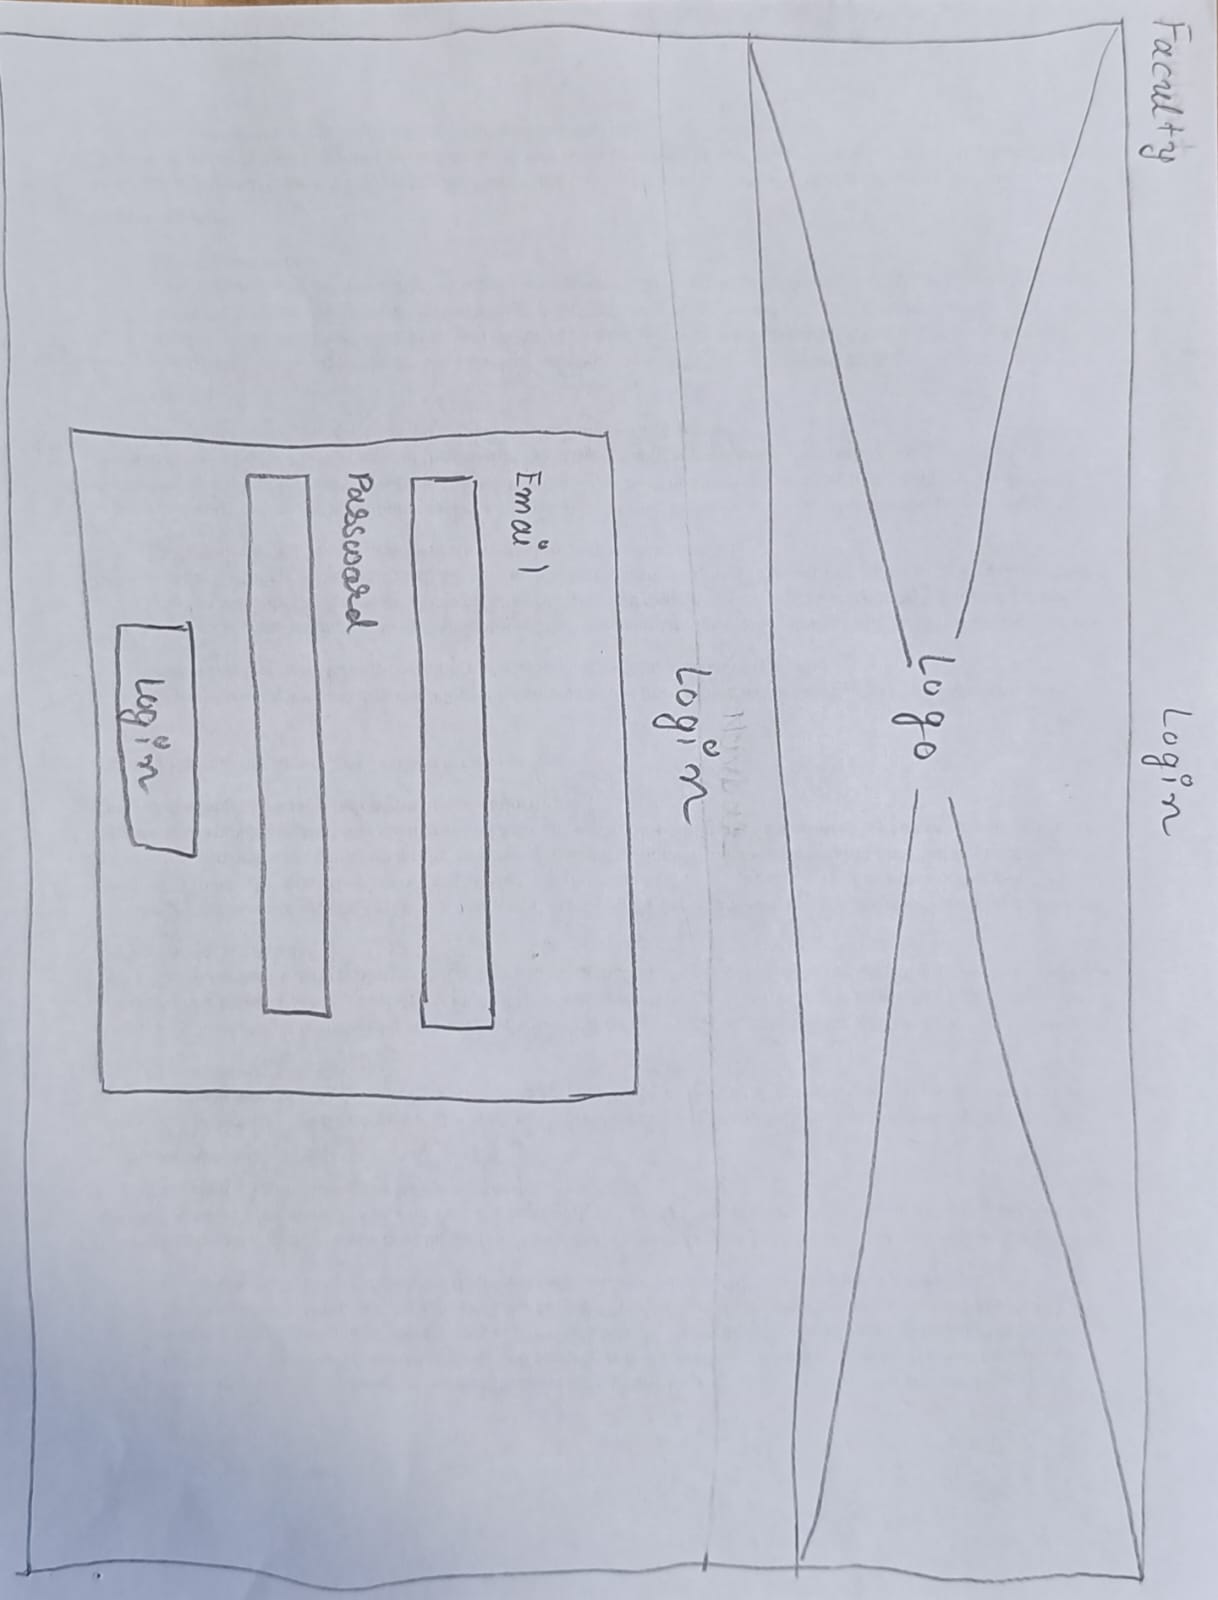 Faculty
Login
Logo
Login
Email
Password
Login